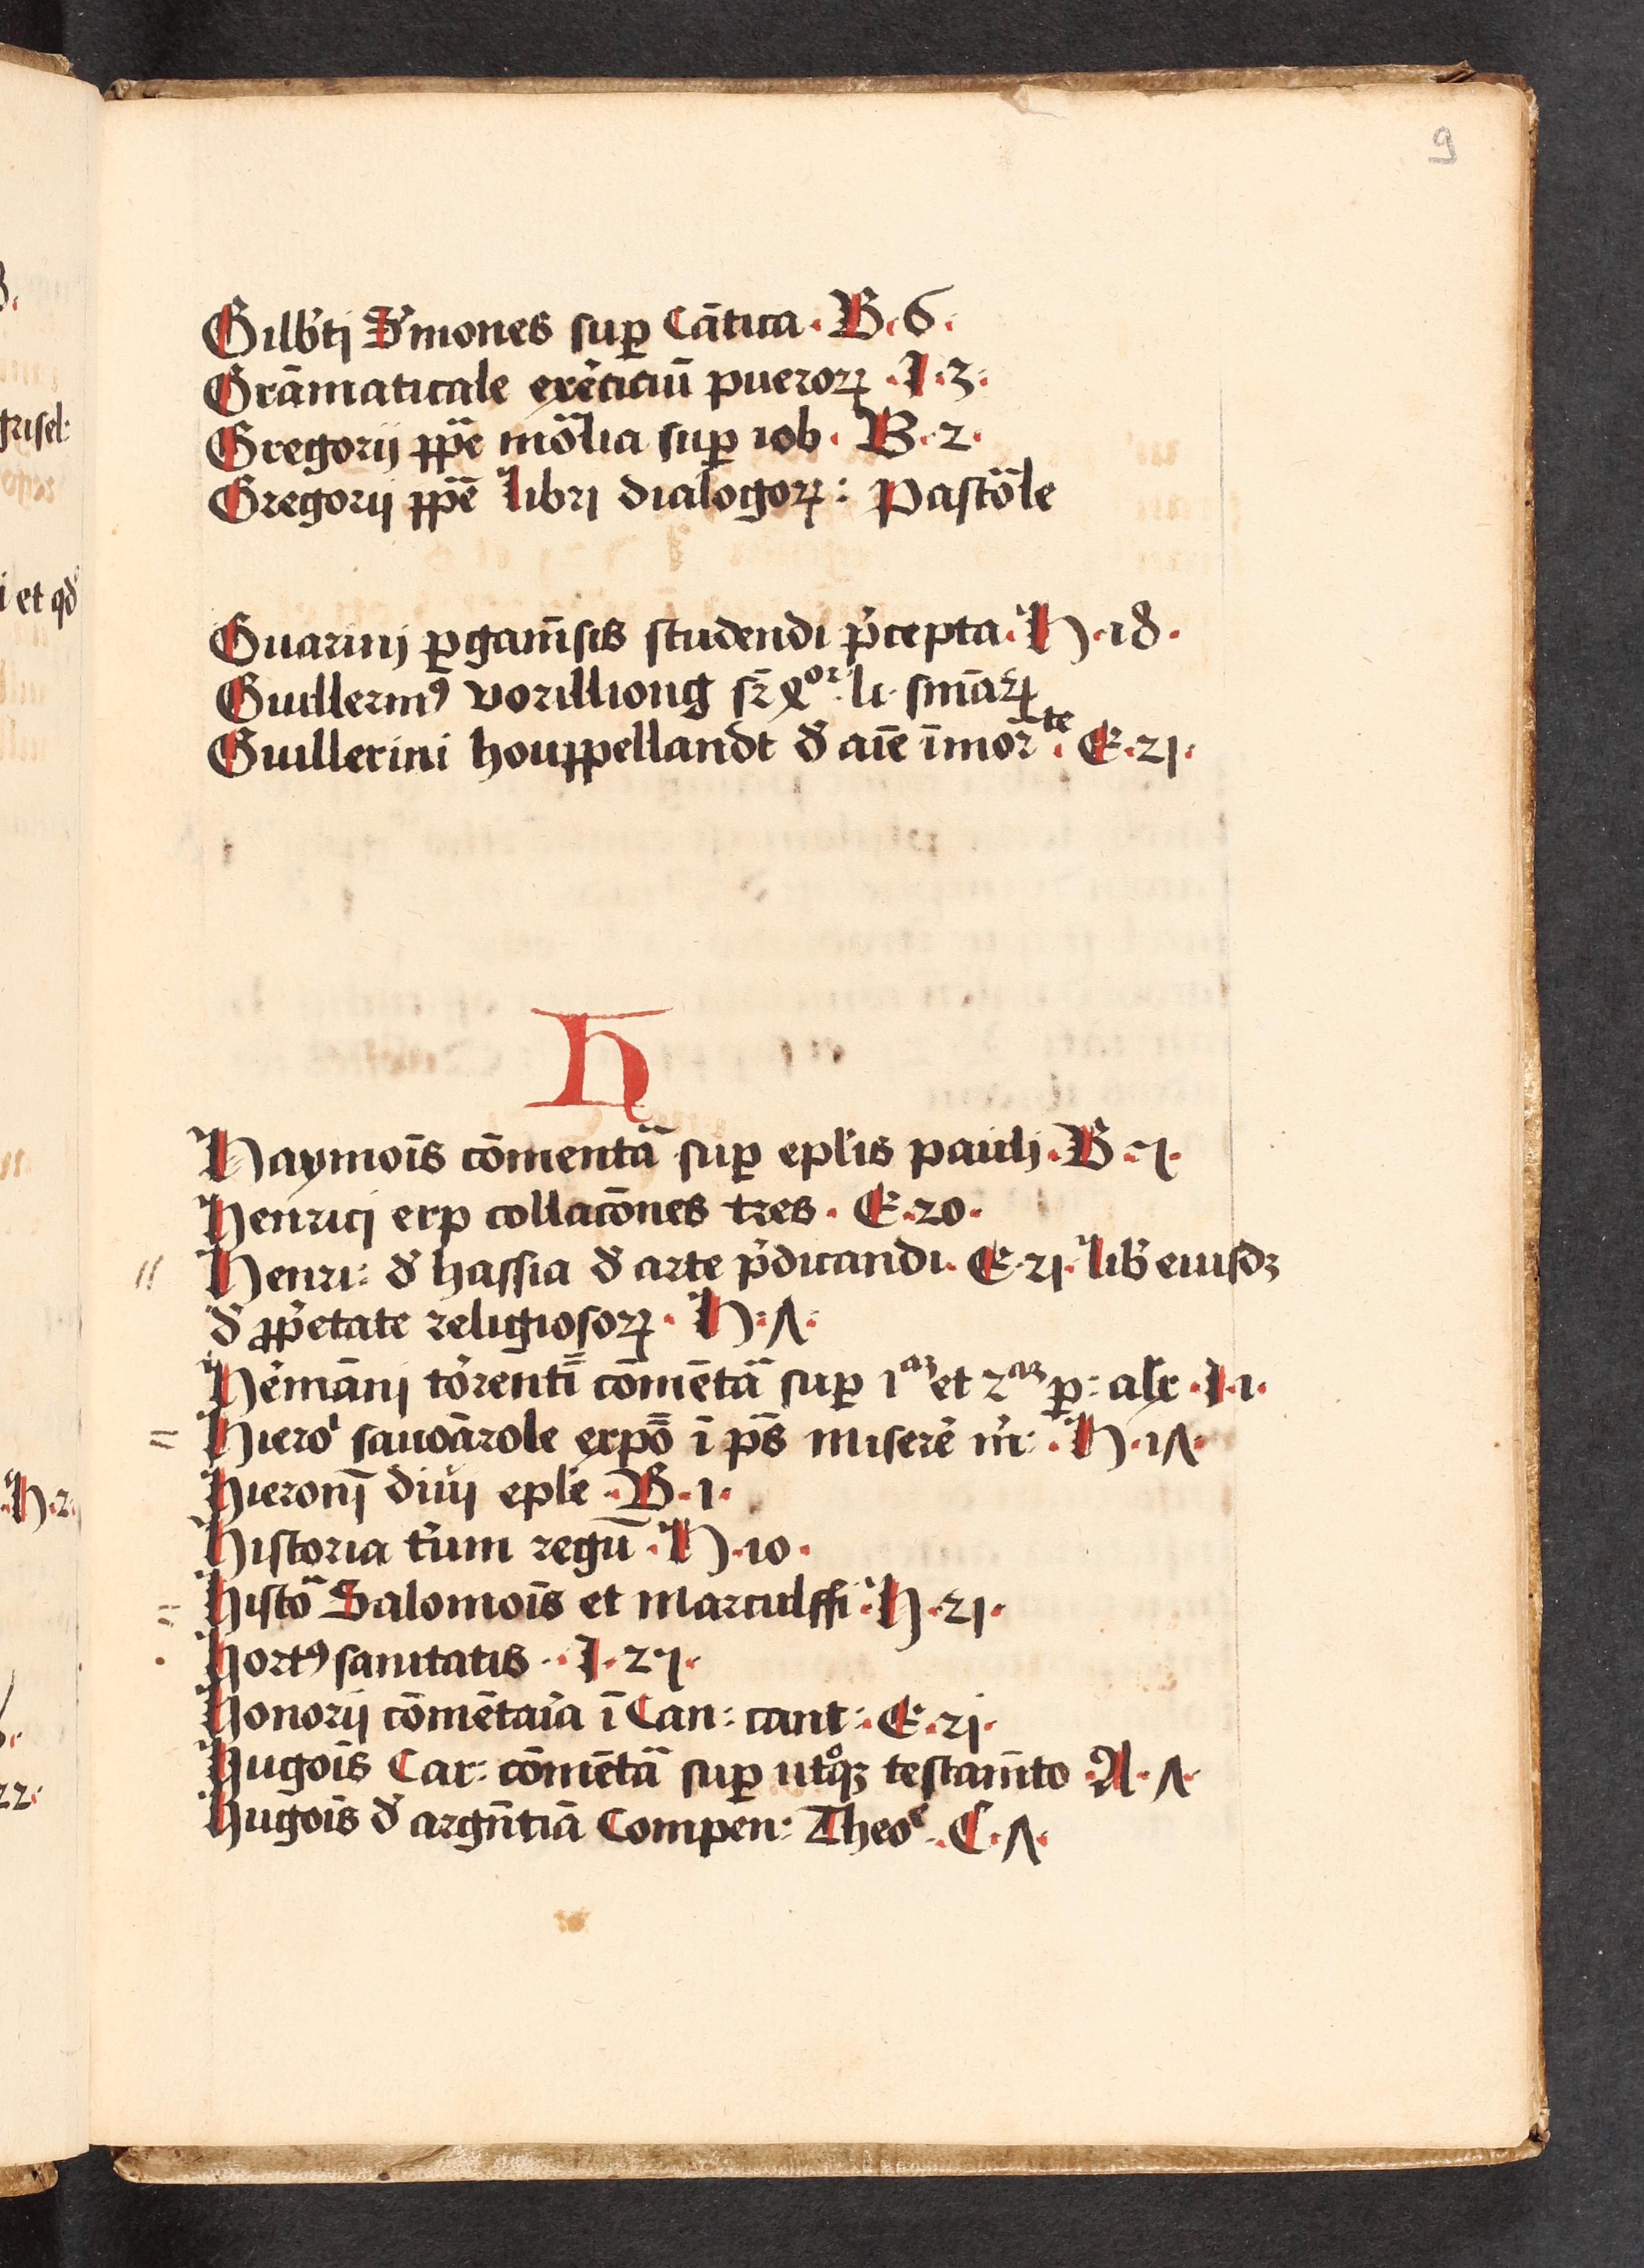 9
Gilb'ti S'mones sup Cātica · B · 6 ·
Grāmaticale exe'citiū pueroꝝ · I · 3 ·
Gregorij ꝑpē mo̅lia suꝑ iob · B · 2 ·
Gregorij ꝑpē libri dialogoꝝ : Pasto̅le
Guarinj ꝑgam̄sis studendi p̄cepta · H · 18 ·
Guillermꝰ vorilliong sr̄ li · sn̄iaꝝ
Guillerini houppellandt d' aīe īmorᵗᵉ · E · 21 ·
H
Haymoīs cōmentā suꝑ eplīs paulj · B · 7 ·
Henricj erp collacōnes tres · E · 20 ·
Henri : d' hassia d' arte p̄dicandi · E · 21 · lib' eiusdꝫ
d' ꝓp̄etate religiosoꝝ · H : ʌ ·
He'mānj to'rentī cōmētā suꝑ 1ᵃᵐ et 2ᵃᵐ p : alx · I · 1 ·
Hiero' sauoārole expō ī ps̄ miserē m'i : · H · 1ʌ ·
Hieronj̄ diuj eplē · B · 1 ·
Historia t'um regū · H · 10 ·
Histō Salomoīs et Marculffi · H · 21 ·
Hortꝰ sanitatis · I · 27 ·
Honorij cōmētaīa ī Can : cant : E · 21 ·
Hugoīs Car : cōmētā suꝑ utqꝫ testam̄to A · ʌ ·
Hugoīs d' argn̄tiā Compen : Theoᵉ · C · ʌ ·